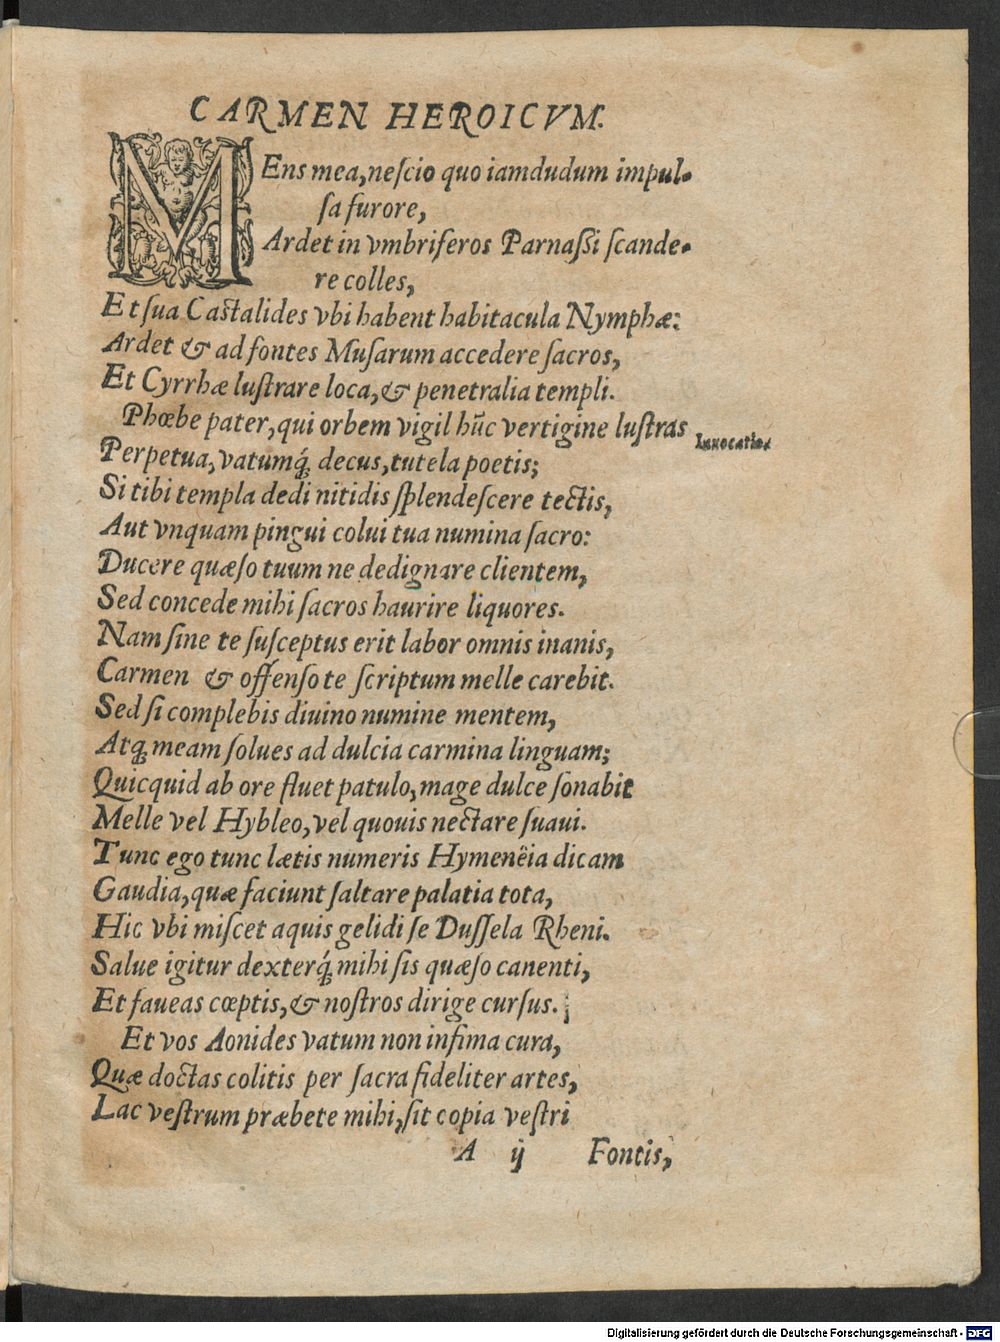 CARMEN HEROICVM.
MEns mea, neſcio quo iamdudum impul-
ſa furore,
Ardet in vmbriferos Parnaſsi ſcande-
re colles,
Et ſua Caſtalides vbi habent habitacula Nymphæ:
Ardet & ad fontes Muſarum accedere ſacros,
Et Cyrrhæ luſtrare loca, & penetralia templi.
Phœbe pater, qui orbem vigil hūc vertigine luſtras
Inuocatio.
Perpetua, vatumq́; decus, tutela poetis;
Si tibi templa dedi nitidis ſplendeſcere tectis,
Aut vnquam pingui colui tua numina ſacro:
Ducere quæſo tuum ne dedignare clientem,
Sed concede mihi ſacros haurire liquores.
Nam ſine te ſuſceptus erit labor omnis inanis,
Carmen & offenſo te ſcriptum melle carebit.
Sed ſi complebis diuino numine mentem,
Atq; meam ſolues ad dulcia carmina linguam;
Quicquid ab ore fluet patulo, mage dulce ſonabit
Melle vel Hybleo, vel quouis nectare ſuaui.
Tunc ego tunc lætis numeris Hymenëia dicam
Gaudia, quæ faciunt ſaltare palatia tota,
Hic vbi miſcet aquis gelidi ſe Duſſela Rheni.
Salue igitur dexterq́; mihi ſis quæſo canenti,
Et faueas cœptis, & noſtros dirige curſus.
Et vos Aonides vatum non infima cura,
Quæ doctas colitis per ſacra fideliter artes,
Lac veſtrum præbete mihi, ſit copia veſtri
A ij Fontis,
Digitalisierung gefördert durch die Deutsche Forschungsgemeinschaft - DFG